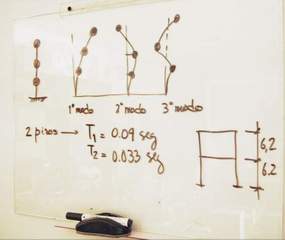 1º modo 2º modo 3º modo
2 pisos → T₁ = 0.09 seg
T₂ = 0.033 seg
6,2
6.2